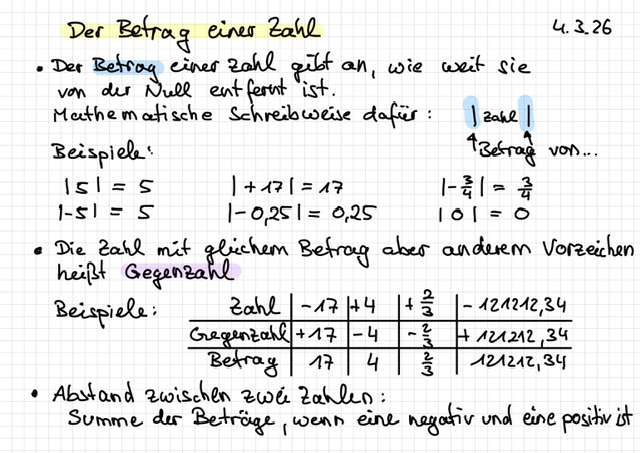 Der Betrag einer Zahl 4.3.26
• Der Betrag einer Zahl gibt an, wie weit sie
von der Null entfernt ist.
Mathematische Schreibweise dafür: |Zahl|
Beispiele: Betrag von...
|5| = 5 |+17| = 17 |-3/4| = 3/4
|-5| = 5 |-0,25| = 0,25 |0| = 0
• Die Zahl mit gleichem Betrag aber anderem Vorzeichen
heißt Gegenzahl
Beispiele: Zahl | -17 | +4 | + 2/3 | - 121212,34
Gegenzahl | +17 | -4 | - 2/3 | + 121212,34
Betrag | 17 | 4 | 2/3 | 121212,34
• Abstand zwischen zwei Zahlen:
Summe der Beträge, wenn eine negativ und eine positiv ist